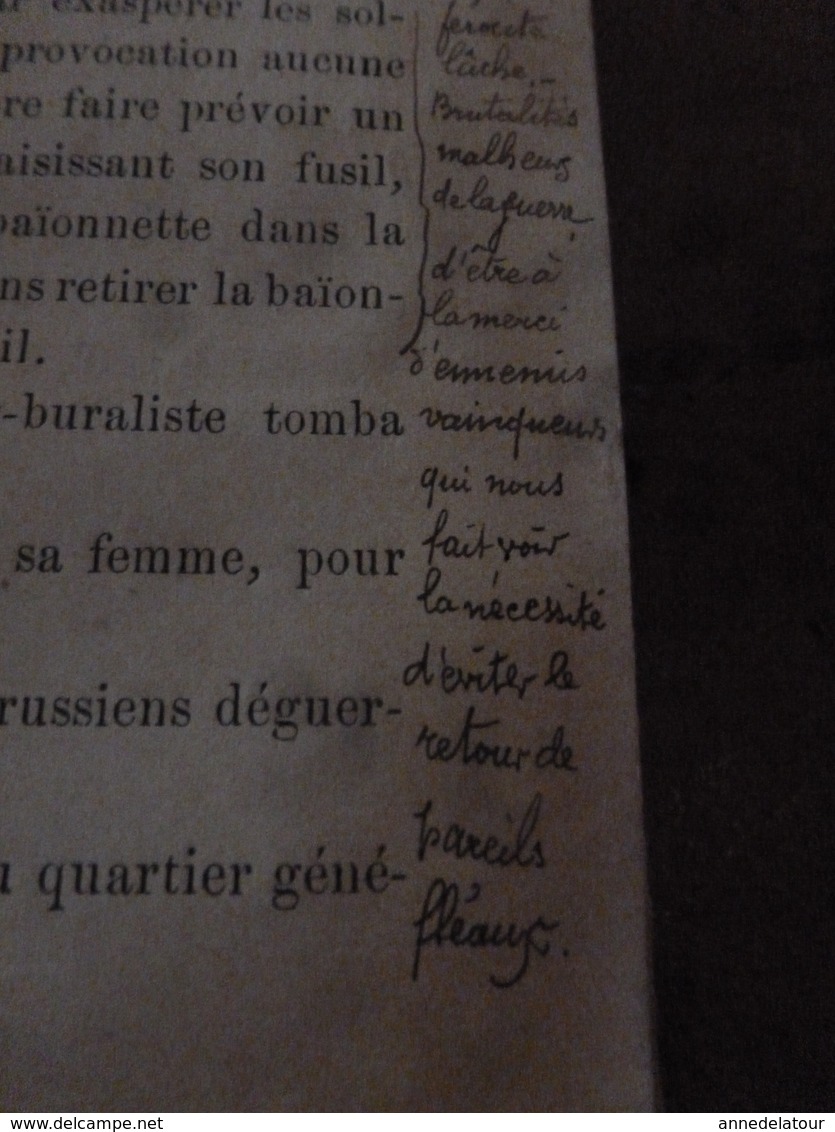 exaspérer les sol-
provocation aucune
re faire prévoir un
aisissant son fusil,
baïonnette dans la
ns retirer la baïon-
il.
-buraliste tomba
sa femme, pour
russiens déguer-
u quartier géné-
férocité
lâche.-
Brutalités
malheurs
de la guerre,
d'être à
la merci
d'ennemis
vainqueurs
qui nous
fait voir
la nécessité
d'éviter le
retour de
pareils
fléaux.
www.delcampe.net
annedelatour